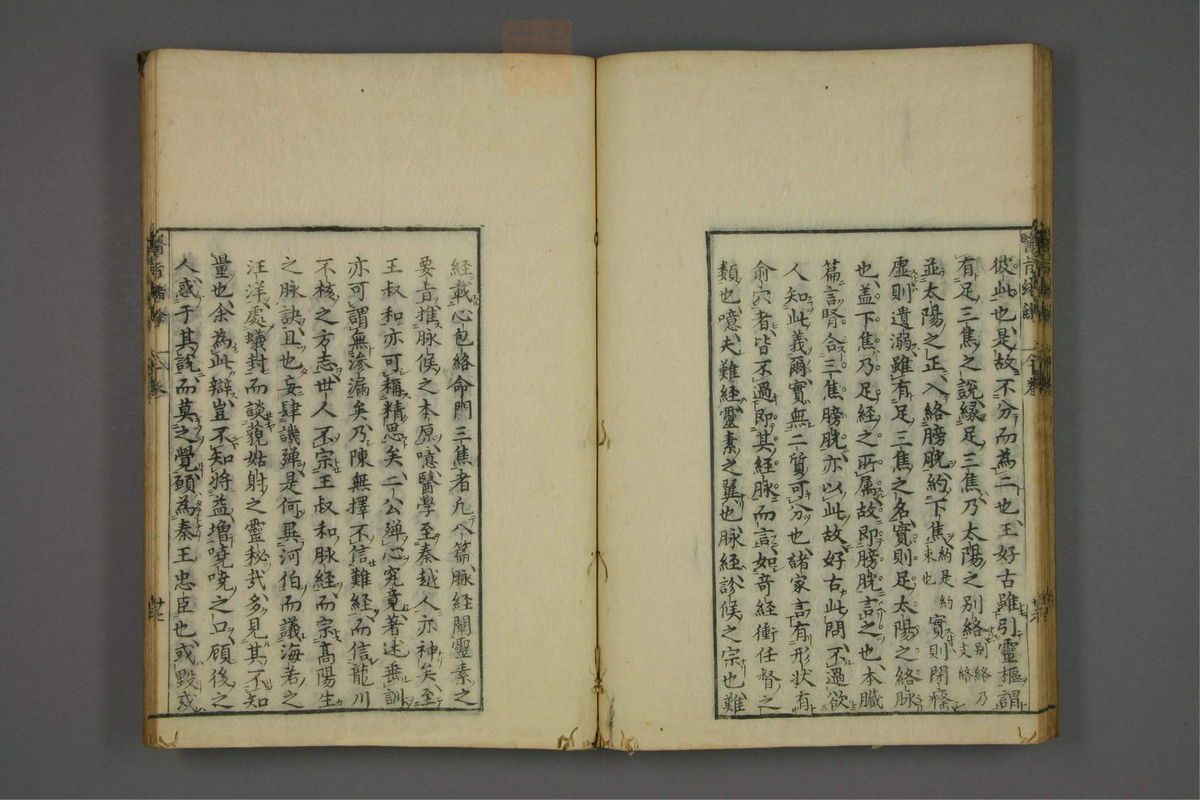 彼此也是故不分而為二也王好古雖引靈樞謂
有足三焦之說緣足三焦乃太陽之別絡別絡乃支絡
並太陽之正入絡膀胱約下焦約是約束也實則閉癃
虛則遺溺雖有足三焦之名實則足太陽之絡脉
也盖下焦乃足經之所属故即膀胱言之也本臓
篇言腎合三焦膀胱亦以此故好古此問不過欲
人知此義爾實無二質可分也諸家言有形状有
俞穴者皆不過即其經脉而言如奇經衝任督之
類也噫夫難經靈素之翼也脉經診候之宗也難
経載心包絡命門三焦者九八篇脉経闡靈素之
要旨推脉候之本原噫醫学至秦越人亦神矣至
王叔和亦可稱精思矣二公殫心究竟著述垂訓
亦可謂無滲漏矣乃陳無擇不信難経而信龍川
不核之方志世人不宗王叔和脉経而宗髙陽生
之脉訣且也妄肆譏殫是何異河伯而議海若之
汪洋處蟻封而談藐姑射之靈秘哉多見其不知
量也余為此辯豈不知將益增嘵嘵之口顧後之
人惑于其說而莫之覺願為秦王忠臣也或毀或